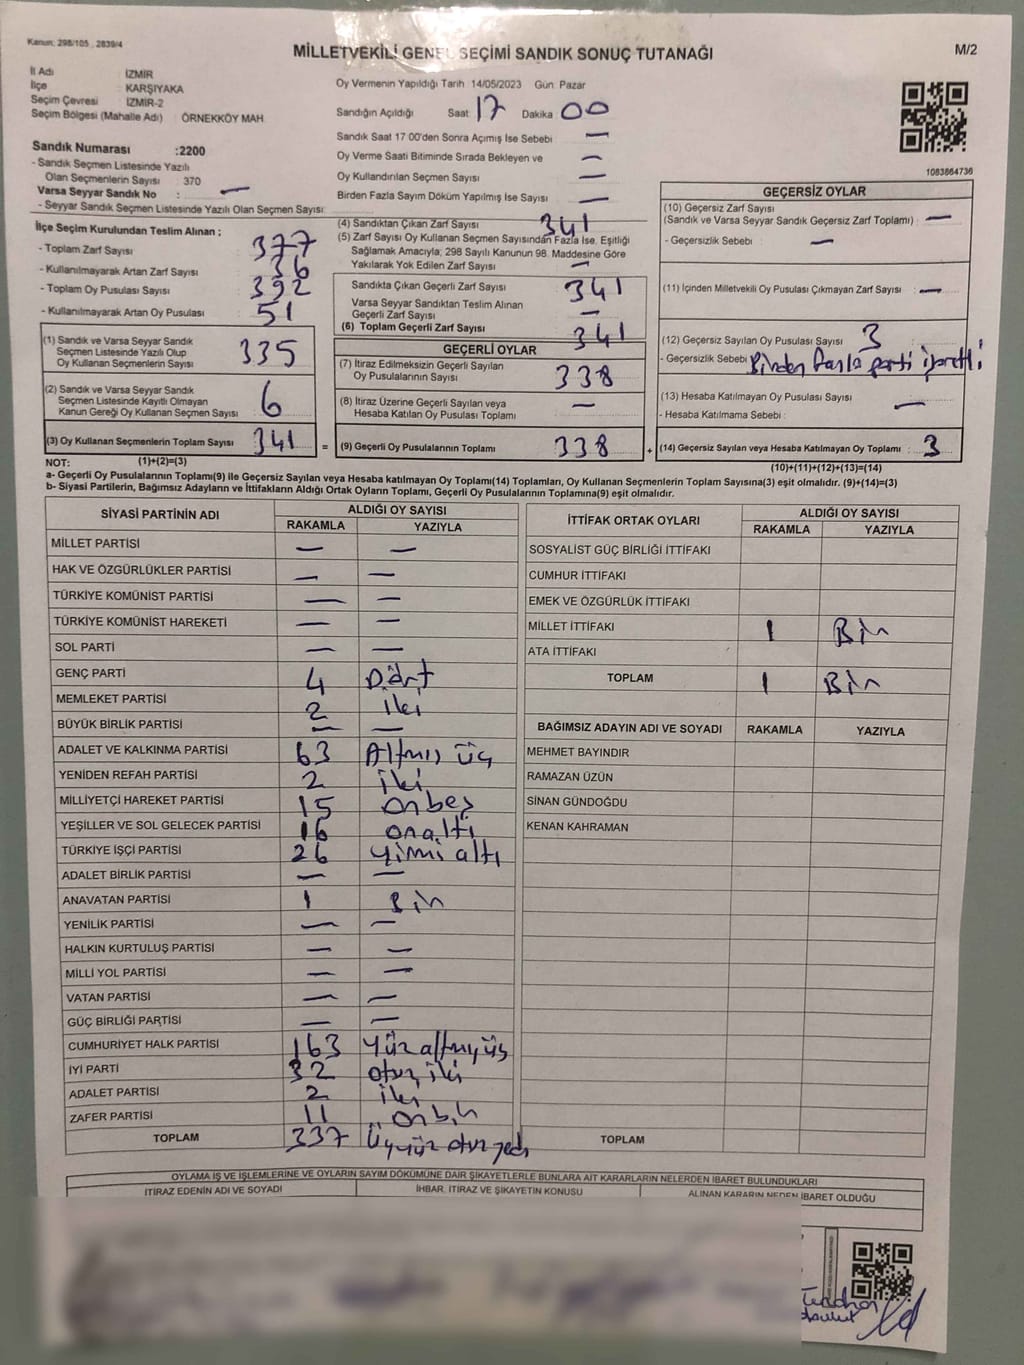 Kanun: 298/105 , 2839/4
MİLLETVEKİLİ GENEL SEÇİMİ SANDIK SONUÇ TUTANAĞI
M/2
İl Adı : İZMİR
İlçe : KARŞIYAKA
Seçim Çevresi : İZMİR-2
Seçim Bölgesi (Mahalle Adı) : ÖRNEKKÖY MAH.
Sandık Numarası :2200
- Sandık Seçmen Listesinde Yazılı
Olan Seçmenlerin Sayısı : 370
Varsa Seyyar Sandık No : —
- Seyyar Sandık Seçmen Listesinde Yazılı Olan Seçmen Sayısı:
Oy Vermenin Yapıldığı Tarih 14/05/2023 Gün: Pazar
Sandığın Açıldığı Saat 17 Dakika 00
Sandık Saat 17 00'den Sonra Açımış İse Sebebi —
Oy Verme Saati Bitiminde Sırada Bekleyen ve —
Oy Kullandırılan Seçmen Sayısı —
Birden Fazla Sayım Döküm Yapılmış İse Sayısı —
1083864736
İlçe Seçim Kurulundan Teslim Alınan ;
- Toplam Zarf Sayısı 377
- Kullanılmayarak Artan Zarf Sayısı 36
- Toplam Oy Pusulası Sayısı 392
- Kullanılmayarak Artan Oy Pusulası 51
(1) Sandık ve Varsa Seyyar Sandık
Seçmen Listesinde Yazılı Olup
Oy Kullanan Seçmenlerin Sayısı 335
(2) Sandık ve Varsa Seyyar Sandık
Seçmen Listesinde Kayıtlı Olmayan
Kanun Gereği Oy Kullanan Seçmen Sayısı 6
(3) Oy Kullanan Seçmenlerin Toplam Sayısı 341
(4) Sandıktan Çıkan Zarf Sayısı 341
(5) Zarf Sayısı Oy Kullanan Seçmen Sayısından Fazla İse, Eşitliği
Sağlamak Amacıyla; 298 Sayılı Kanunun 98. Maddesine Göre
Yakılarak Yok Edilen Zarf Sayısı —
Sandıkta Çıkan Geçerli Zarf Sayısı 341
Varsa Seyyar Sandıktan Teslim Alınan
Geçerli Zarf Sayısı —
(6) Toplam Geçerli Zarf Sayısı 341
GEÇERLİ OYLAR
(7) İtiraz Edilmeksizin Geçerli Sayılan
Oy Pusulalarının Sayısı 338
(8) İtiraz Üzerine Geçerli Sayılan veya
Hesaba Katılan Oy Pusulası Toplamı —
= (9) Geçerli Oy Pusulalarının Toplamı 338
GEÇERSİZ OYLAR
(10) Geçersiz Zarf Sayısı
(Sandık ve Varsa Seyyar Sandık Geçersiz Zarf Toplamı) : —
- Geçersizlik Sebebi : —
(11) İçinden Milletvekili Oy Pusulası Çıkmayan Zarf Sayısı : —
(12) Geçersiz Sayılan Oy Pusulası Sayısı 3
- Geçersizlik Sebebi : Birden fazla parti işaretli
(13) Hesaba Katılmayan Oy Pusulası Sayısı —
- Hesaba Katılmama Sebebi :
+ (14) Geçersiz Sayılan veya Hesaba Katılmayan Oy Toplamı : 3
NOT: (1)+(2)=(3)
(10)+(11)+(12)+(13)=(14)
a- Geçerli Oy Pusulalarının Toplamı(9) ile Geçersiz Sayılan veya Hesaba katılmayan Oy Toplamı(14) Toplamları, Oy Kullanan Seçmenlerin Toplam Sayısına(3) eşit olmalıdır. (9)+(14)=(3)
b- Siyasi Partilerin, Bağımsız Adayların ve İttifakların Aldığı Ortak Oyların Toplamı, Geçerli Oy Pusulalarının Toplamına(9) eşit olmalıdır.
SİYASİ PARTİNİN ADI ALDIĞI OY SAYISI
RAKAMLA YAZIYLA
MİLLET PARTİSİ — —
HAK VE ÖZGÜRLÜKLER PARTİSİ — —
TÜRKİYE KOMÜNİST PARTİSİ — —
TÜRKİYE KOMÜNİST HAREKETİ — —
SOL PARTİ — —
GENÇ PARTİ 4 Dört
MEMLEKET PARTİSİ 2 iki
BÜYÜK BİRLİK PARTİSİ — —
ADALET VE KALKINMA PARTİSİ 63 Altmış üç
YENİDEN REFAH PARTİSİ 2 iki
MİLLİYETÇİ HAREKET PARTİSİ 15 onbeş
YEŞİLLER VE SOL GELECEK PARTİSİ 16 onaltı
TÜRKİYE İŞÇİ PARTİSİ 26 yirmi altı
ADALET BİRLİK PARTİSİ — —
ANAVATAN PARTİSİ 1 Bir
YENİLİK PARTİSİ — —
HALKIN KURTULUŞ PARTİSİ — —
MİLLİ YOL PARTİSİ — —
VATAN PARTİSİ — —
GÜÇ BİRLİĞİ PARTİSİ — —
CUMHURİYET HALK PARTİSİ 163 Yüz altmışüç
İYİ PARTİ 32 otuz iki
ADALET PARTİSİ 2 iki
ZAFER PARTİSİ 11 onbir
TOPLAM 337 üçyüz otuz yedi
İTTİFAK ORTAK OYLARI ALDIĞI OY SAYISI
RAKAMLA YAZIYLA
SOSYALİST GÜÇ BİRLİĞİ İTTİFAKI
CUMHUR İTTİFAKI
EMEK VE ÖZGÜRLÜK İTTİFAKI
MİLLET İTTİFAKI 1 Bir
ATA İTTİFAKI
TOPLAM 1 Bir
BAĞIMSIZ ADAYIN ADI VE SOYADI RAKAMLA YAZIYLA
MEHMET BAYINDIR
RAMAZAN ÜZÜN
SİNAN GÜNDOĞDU
KENAN KAHRAMAN
TOPLAM
OYLAMA İŞ VE İŞLEMLERİNE VE OYLARIN SAYIM DÖKÜMÜNE DAİR ŞİKAYETLERLE BUNLARA AİT KARARLARIN NELERDEN İBARET BULUNDUKLARI
İTİRAZ EDENİN ADI VE SOYADI İHBAR, İTİRAZ VE ŞİKAYETİN KONUSU ALINAN KARARIN NEDEN İBARET OLDUĞU